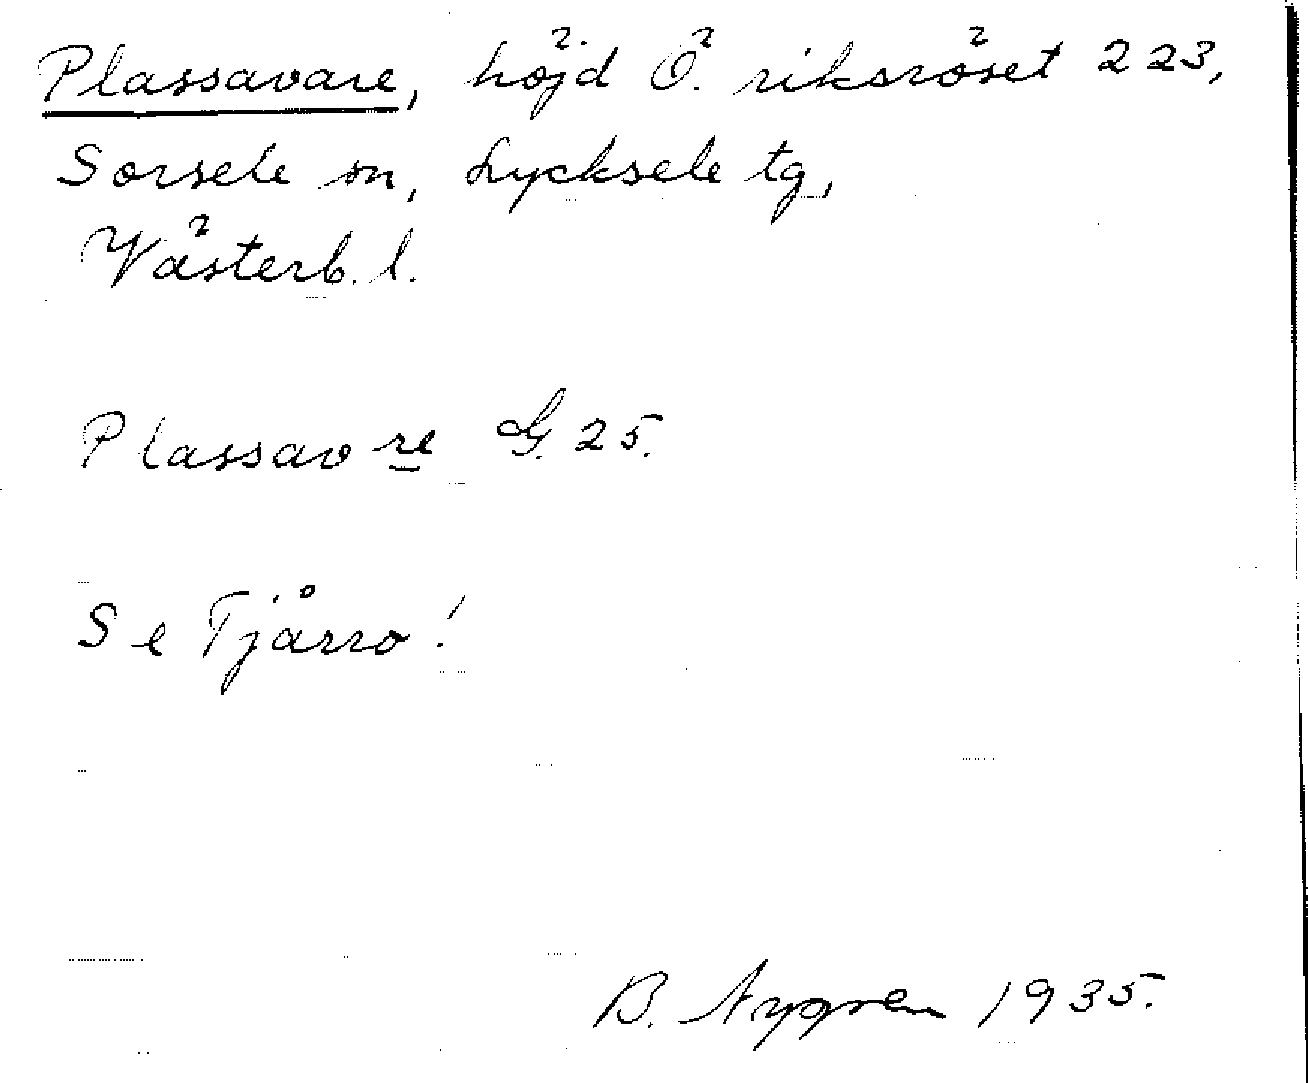 Plassavare, höjd Ö. riksröset 223,
Sorsele sn, Lycksele tg,
Västerb. l.
Plassavre G. 25.
Se Tjårro!
B. Nygren 1935.